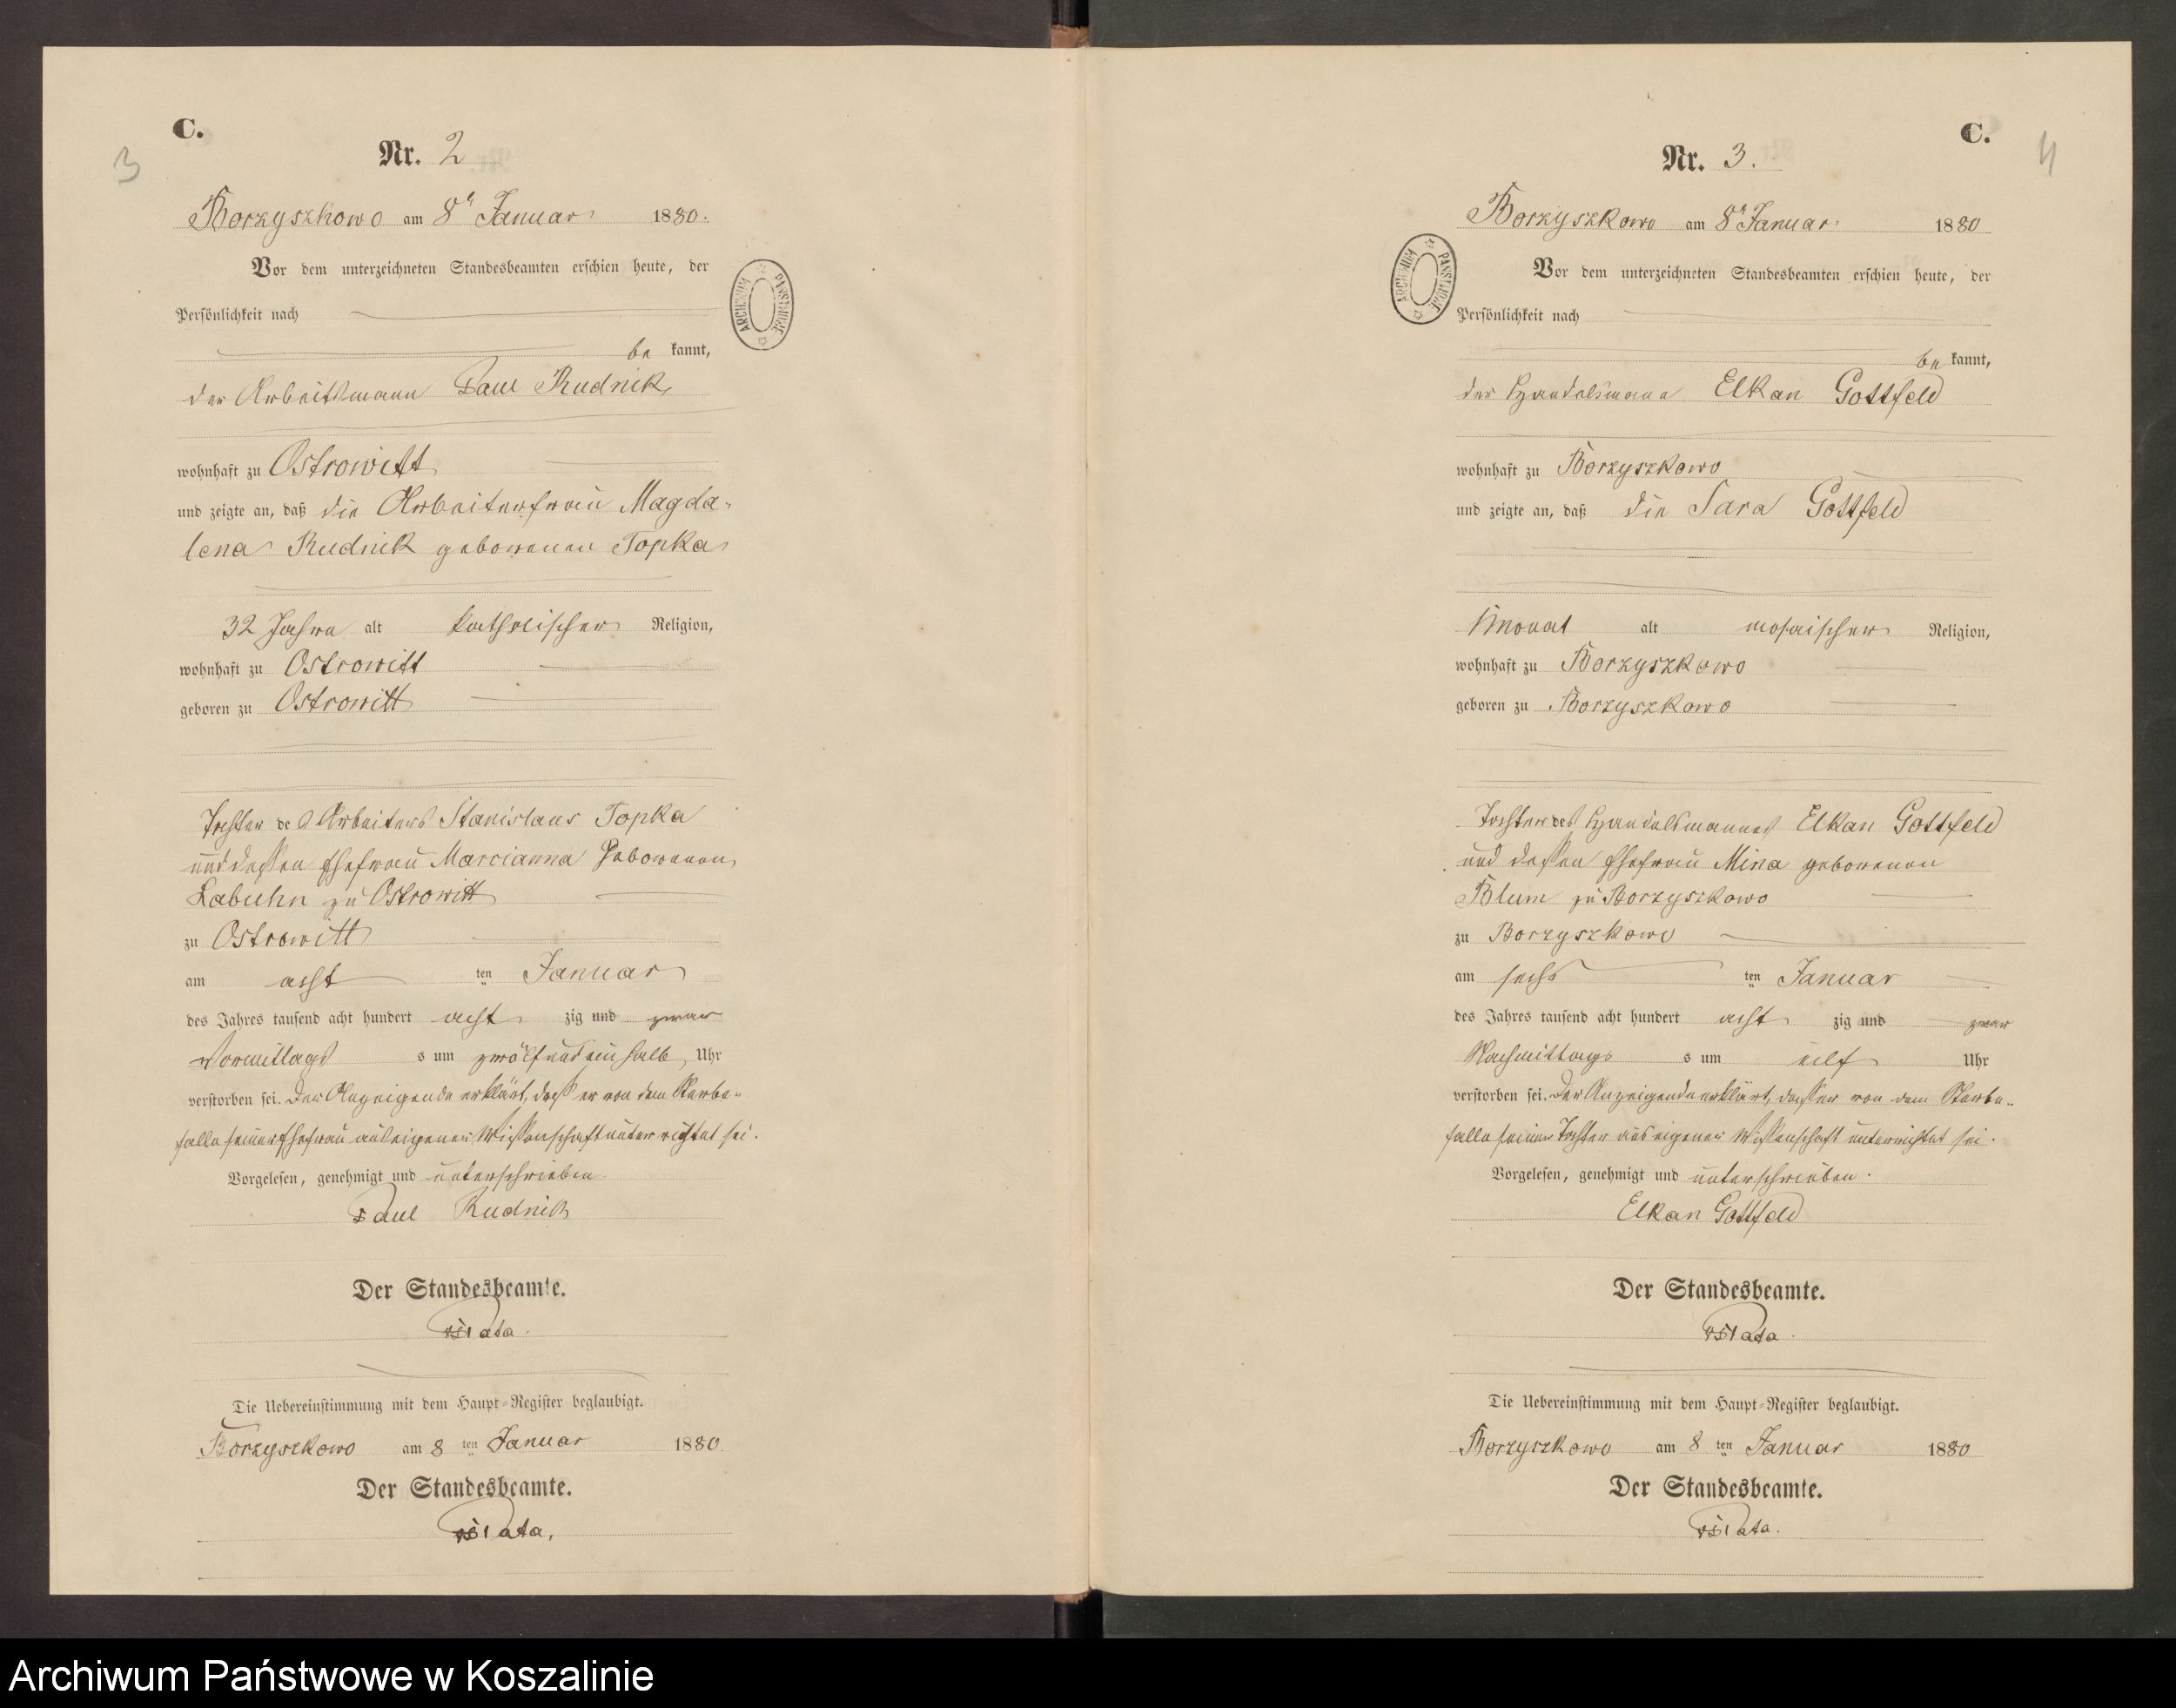 C.
3
Nr. 2
Borzyszkowo am 8t Januar 1880.
Vor dem unterzeichneten Standesbeamten erschien heute, der
Persönlichkeit nach
be kannt,
der Arbeitsmann Paul Rudnik,
wohnhaft zu Ostrowitt
und zeigte an, daß die Arbeiterfrau Magda-
lena Rudnik geborenen Topka
32 Jahre alt katholischer Religion,
wohnhaft zu Ostrowitt
geboren zu Ostrowitt
Tochter des Arbeiters Stanislaus Topka
und dessen Ehefrau Marcianna geborenen
Labuhn zu Ostrowitt
zu Ostrowitt
am acht ten Januar
des Jahres tausend acht hundert acht zig und zwar
Vormittags s um zwölf und ein halb Uhr
verstorben sei. Der Anzeigende erklärt, daß er von dem Sterbe-
falle seiner Ehefrau aus eigener Wissenschaft unterrichtet sei.
Vorgelesen, genehmigt und unterschrieben
Paul Rudnik
Der Standesbeamte.
Die Uebereinstimmung mit dem Haupt-Register beglaubigt.
Borzyszkowo am 8 ten Januar 1880.
Der Standesbeamte.
C.
4
Nr. 3.
Borzyszkowo am 8t Januar 1880
Vor dem unterzeichneten Standesbeamten erschien heute, der
Persönlichkeit nach
be kannt,
der Handelsmann Elkan Gottfeld
wohnhaft zu Borzyszkowo
und zeigte an, daß die Sara Gottfeld
1 Monat alt mosaischer Religion,
wohnhaft zu Borzyszkowo
geboren zu Borzyszkowo
Tochter des Handelsmannes Elkan Gottfeld
und dessen Ehefrau Mina geborenen
Blum zu Borzyszkowo
zu Borzyszkowo
am sechs ten Januar
des Jahres tausend acht hundert acht zig und zwar
Nachmittags s um eilf Uhr
verstorben sei. Der Anzeigende erklärt, daß er von dem Sterbe-
falle seiner Tochter aus eigener Wissenschaft unterrichtet sei.
Vorgelesen, genehmigt und unterschrieben.
Elkan Gottfeld
Der Standesbeamte.
Die Uebereinstimmung mit dem Haupt-Register beglaubigt.
Borzyszkowo am 8 ten Januar 1880
Der Standesbeamte.
ARCHIWUM PAŃSTWOWE
ARCHIWUM PAŃSTWOWE
Archiwum Państwowe w Koszalinie